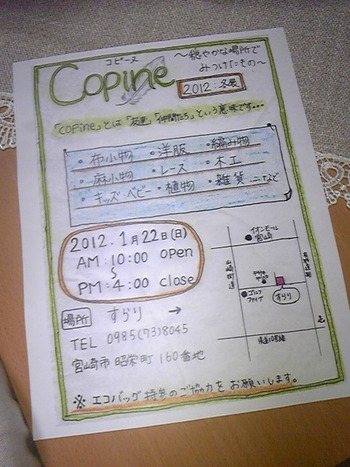 コピーヌ
Copine
〜穏やかな場所で
みつけたもの〜
2012.冬展
「copine」とは「友達」「仲間たち」という意味です…
・布小物 ・洋服 ・編み物
・麻小物 ・レース ・木工
・キッズ・ベビー ・植物 ・雑貨 …など
2012.1月22日(日)
AM:10:00 open
〜
PM:4:00 close
場所 すらり →
TEL 0985(73)8045
宮崎市 昭栄町 160番地
イオンモール
宮崎
ゴルフ
ファイブ
すらり
※エコバッグ持参のご協力をお願いします。